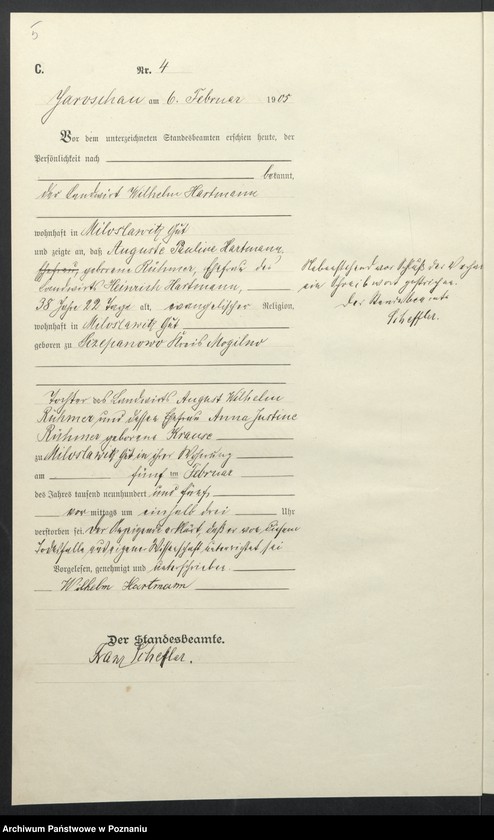 5
C.
Nr. 4
Jaroschau am 6. Februar 1905
Vor dem unterzeichneten Standesbeamten erschien heute, der
Persönlichkeit nach
bekannt,
der Landwirt Wilhelm Hartmann
wohnhaft in Miloslawitz Gut
und zeigte an, daß Auguste Pauline Hartmann
Ehefrau, geborene Rühmer, Ehefrau des
Landwirts Heinrich Hartmann,
38 Jahre 22 Tage alt, evangelischer Religion,
wohnhaft in Miloslawitz Gut
geboren zu Kreis Mogilno
Tochter des Landwirts August Wilhelm
Rühmer und dessen Ehefrau Anna Justine
Rühmer geborene Krause
zu Miloslawitz Gut in ihrer Wohnung
am fünf ten Februar
des Jahres tausend neunhundert und fünf
vor mittags um einhalb drei Uhr
verstorben sei. Der Anzeigende erklärt, daß er von diesem
Todesfalle aus eigener Wissenschaft unterrichtet sei
Vorgelesen, genehmigt und unterschrieben
Wilhelm Hartmann
Der Standesbeamte.
Franz Scheffler.
Nebenstehend vor Schluß der
ein Schreibwort gestrichen.
Der Standesbeamte
Scheffler.
Archiwum Państwowe w Poznaniu